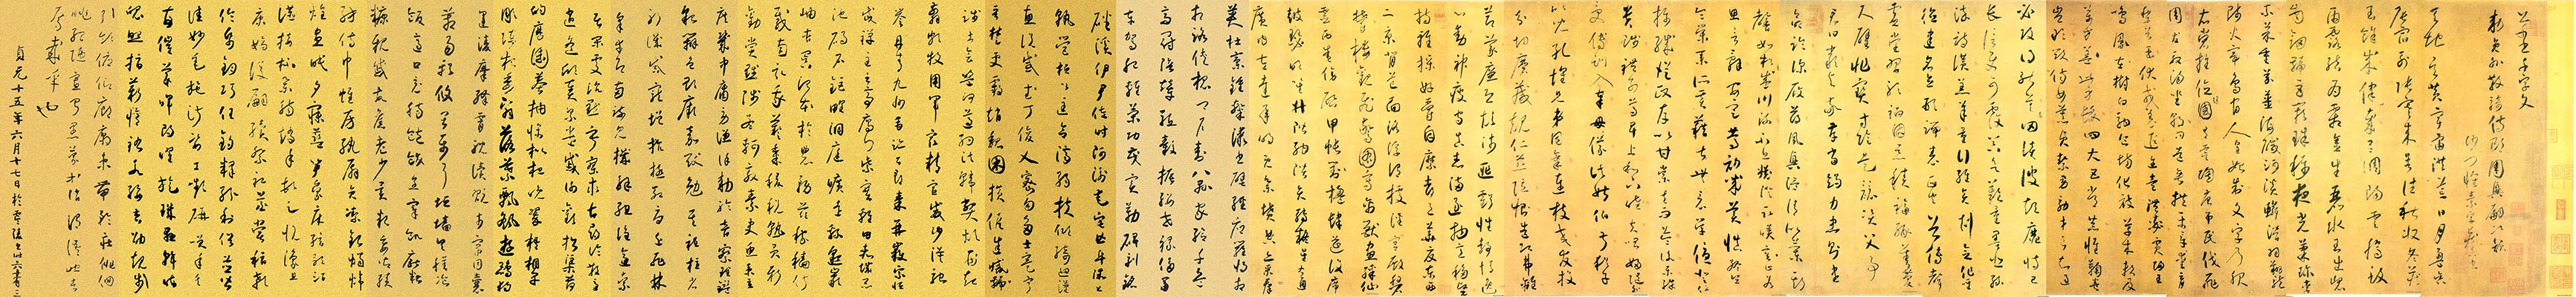 小草千字文
敕員外散騎侍郎周興嗣次韻
沙門懷素
天地玄黃宇宙洪荒日月盈昃
辰宿列張寒來暑往秋收冬藏
閏餘成歲律呂調陽雲騰致
雨露結為霜金生麗水玉出崑
崗劍號巨闕珠稱夜光果珍李
柰菜重芥薑海鹹河淡鱗潛羽翔龍
師火帝鳥官人皇始制文字乃服
衣裳推位讓國有虞陶唐弔民伐罪
周發商湯坐朝問道垂拱平章愛育
黎首臣伏戎羌遐邇壹體率賓歸王
鳴鳳在樹白駒食場化被草木賴及
萬方蓋此身髮四大五常恭惟鞠養
豈敢毀傷女慕貞潔男效才良知過
必改得能莫忘罔談彼短靡恃己
長信使可覆器欲難量墨悲絲
染詩讚羔羊景行維賢剋念作聖
德建名立形端表正空谷傳聲
虛堂習聽禍因惡積福緣善慶
尺璧非寶寸陰是競資父事
君曰嚴與敬孝當竭力忠則盡
命臨深履薄夙興溫凊似蘭斯
馨如松之盛川流不息淵澄取映容止若
思言辭安定篤初誠美慎終宜
令榮業所基籍甚無竟學優登仕
攝職從政存以甘棠去而益詠樂殊
貴賤禮別尊卑上和下睦夫唱婦隨
外受傅訓入奉母儀諸姑伯叔猶子
比兒孔懷兄弟同氣連枝交友投
分切磨箴規仁慈隱惻造次弗離
節義廉退顛沛匪虧性靜情逸
心動神疲守真志滿逐物意移堅
持雅操好爵自縻都邑華夏東西
二京背芒面洛浮渭據涇宮殿盤
鬱樓觀飛驚圖寫禽獸畫綵仙
靈丙舍傍啟甲帳對楹肆筵設席
鼓瑟吹笙升階納陛弁轉疑星右通
廣內左達承明既集墳典亦聚群
英杜稿鍾隸漆書壁經府羅將相
路俠槐卿戶封八縣家給千兵
高冠陪輦驅轂振纓世祿侈富
車駕肥輕策功茂實勒碑刻銘
磻溪伊尹佐時阿衡奄宅曲阜微旦
孰營桓公匡合濟弱扶傾綺迴漢
惠說感武丁俊乂密勿多士寔寧
晉楚更霸趙魏困橫假途滅虢
踐土會盟何遵約法韓弊煩刑起
翦頗牧用軍最精宣威沙漠馳
譽丹青九州禹跡百郡秦并嶽宗恆
岱禪主云亭雁門紫塞雞田赤城昆
池碣石鉅野洞庭曠遠綿邈巖
岫杳冥治本於農務茲稼穡俶
載南畝我藝黍稷稅熟貢新
勸賞黜陟孟軻敦素史魚秉直
庶幾中庸勞謙謹敕聆音察理鑑
貌辨色貽厥嘉猷勉其祗植省
躬譏誡寵增抗極殆辱近恥林
皋幸即兩疏見機解組誰逼索
居閑處沉默寂寥求古尋論散慮
逍遙欣奏累遣慼謝歡招渠荷
的歷園莽抽條枇杷晚翠梧桐早
凋陳根委翳落葉飄颻遊鵾獨
運凌摩絳霄耽讀翫市寓目囊
箱易輶攸畏屬耳垣牆具膳
飧飯適口充腸飽飫烹宰飢厭糟
糠親戚故舊老少異糧妾御績
紡侍巾帷房紈扇圓潔銀燭煒
煌晝眠夕寐藍笋象床絃歌酒
讌接杯舉觴矯手頓足悅豫且
康嫡後嗣續祭祀蒸嘗稽顙
倫紙鈞巧任釣釋紛利俗並皆
佳妙毛施淑姿工顰妍笑年矢
每催曦暉朗曜旋璣懸斡晦
魄環照指薪修祜永綏吉劭矩步
引領俯仰廊廟束帶矜莊徘徊
瞻眺孤陋寡聞愚蒙等誚謂語助者
焉哉乎也
貞元十五年六月十七日於零陵書時六十有三